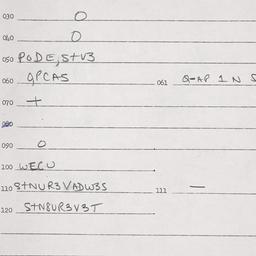 030 O
040 O
050 PODE, S+V3
060 QPCAS 061 Q-AP 1 N S
070 +
080
090 O
100 WECU
110 S+NUR3VADW3S 111 —
120 S+N8UR3V3T